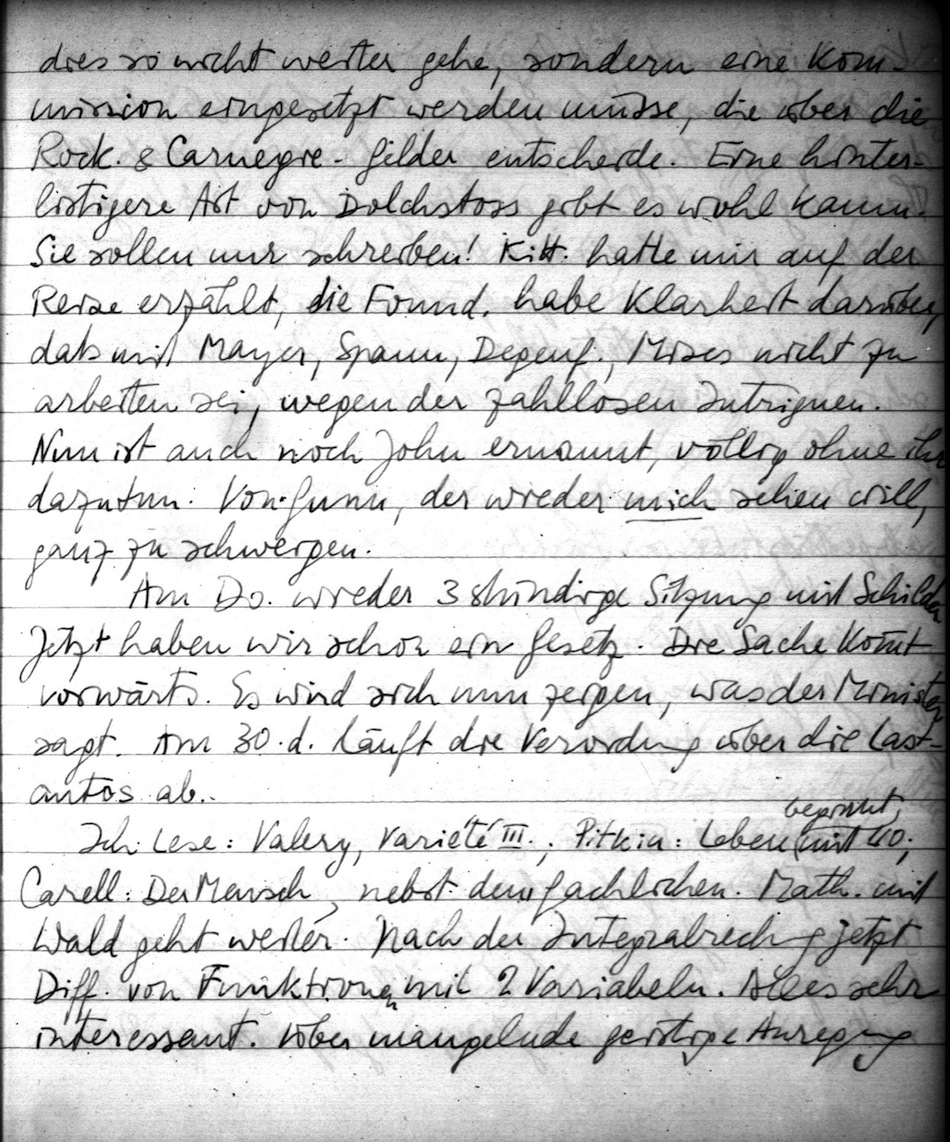 dies so nicht weiter gehe, sondern eine Kom-
mission eingesetzt werden müsse, die über die
Rock. & Carnegie-Gelder entscheide. Eine hinter-
listigere Art von Dolchstoss gibt es wohl kaum.
Sie sollen nur schreiben! Kitt. hatte mir auf der
Reise erzählt, die Found. habe Klarheit darüber,
daß mit Mayer, Spann, Degenf., Mises nicht zu
arbeiten sei, wegen der zahllosen Intriguen.
Nun ist auch noch John ernannt, völlig ohne ihr
dazutun. Von Gunn, der wieder mich sehen will,
ganz zu schweigen.
Am Do. wieder 3 stündige Sitzung mit Schilder.
Jetzt haben wir schon ein Gesetz. Die Sache kom̄t
vorwärts. Es wird sich nun zeigen, was der Minister
sagt. Am 30. d. läuft die Verordng über die Last-
autos ab.
Ich lese: Valery, Variété III.; Pitkin: Leben beginnt mit 40;
Carell: Der Mensch, nebst dem fachlichen. Math. mit
Wald geht weiter. Nach der Integralrechng jetzt
Diff. von Funktionen mit 2 Variabeln. Alles sehr
interessant. Über mangelnde geistige Anregung